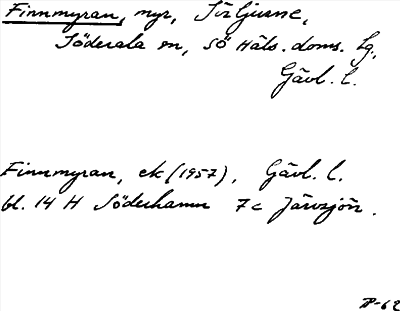 Finnmyran, myr, Sörljusne,
Söderala sn, Sö Häls. doms. lg.
Gävl. l.
Finnmyran, ek (1957), Gävl. l.
bl. 14 H Söderhamn 7c Järvsjön.
-62